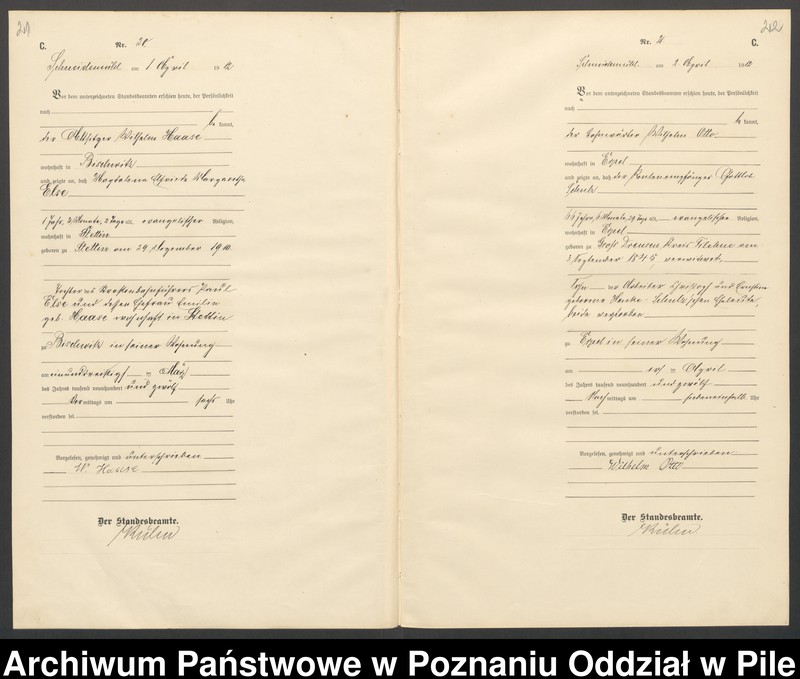 201
C.
Nr. 20
Schneidemühl am 1 April 1912
Vor dem unterzeichneten Standesbeamten erschien heute, der Persönlichkeit
nach
be kannt,
der Altsitzer Wilhelm Haase
wohnhaft in Bischwitz
und zeigte an, daß Magdalena Margarethe
Else
1 Jahr, 3 Monate, 2 Tage alt, evangelischer Religion,
wohnhaft in Stettin
geboren zu Stettin am 29 Dezember 1910
Tochter des Paul
Else und dessen Ehefrau Emilie
geb. Haase wohnhaft in Stettin
zu Bischwitz in seiner Wohnung
am einunddreißigsten März
des Jahres tausend neunhundert und zwölf
Vormittags um sechs Uhr
verstorben sei.
Vorgelesen, genehmigt und unterschrieben
W. Haase
Der Standesbeamte.
202
Nr. 21
C.
Schneidemühl am 2 April 1912
Vor dem unterzeichneten Standesbeamten erschien heute, der Persönlichkeit
nach
be kannt,
der Bahnwärter Wilhelm Otto
wohnhaft in Expel
und zeigte an, daß der Rentenempfänger Gottlieb
Schulz
66 Jahre, 6 Monate, 29 Tage alt, evangelischer Religion,
wohnhaft in Expel
geboren zu Groß Drensen Kreis Filehne am
3 September 1845, verwitwet,
Sohn der Arbeiter und Christine
geborene Henke - Schulz'schen Eheleute,
beide verstorben
zu Expel in seiner Wohnung
am ersten April
des Jahres tausend neunhundert und zwölf
Nachmittags um siebeneinhalb Uhr
verstorben sei.
Vorgelesen, genehmigt und unterschrieben
Wilhelm Otto
Der Standesbeamte.
Archiwum Państwowe w Poznaniu Oddział w Pile